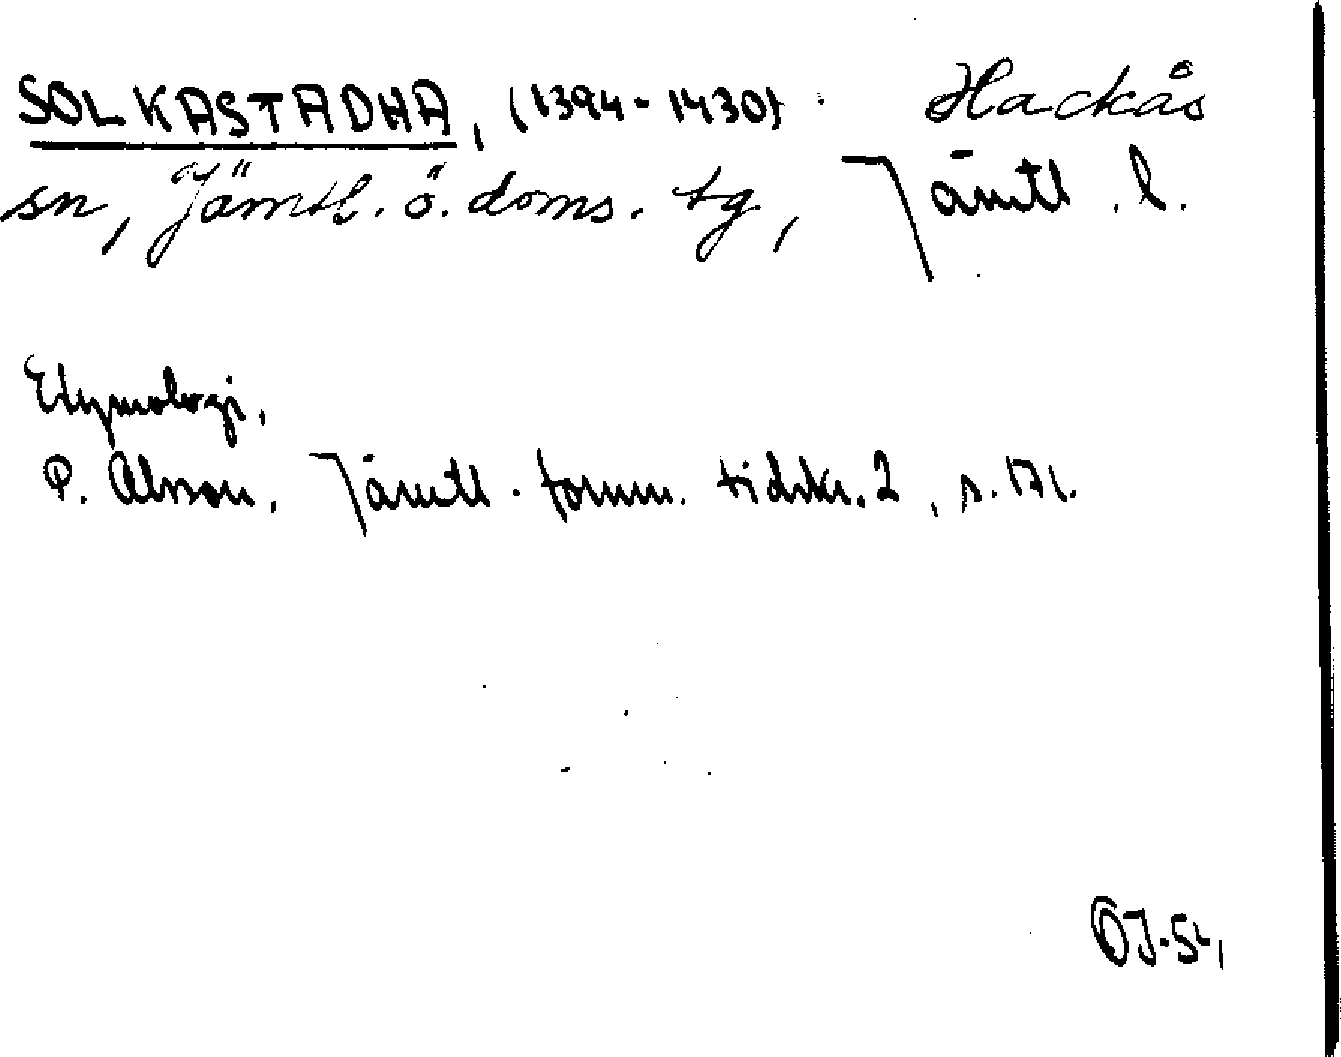 SOLKASTADHA, (1394-1430). Hackås
sn, Jämtl. ö. doms. tg, Jämtl. l.
Etymologi.
P. Olsson. Jämtl. fornm. tidskr. 2, s. 171.